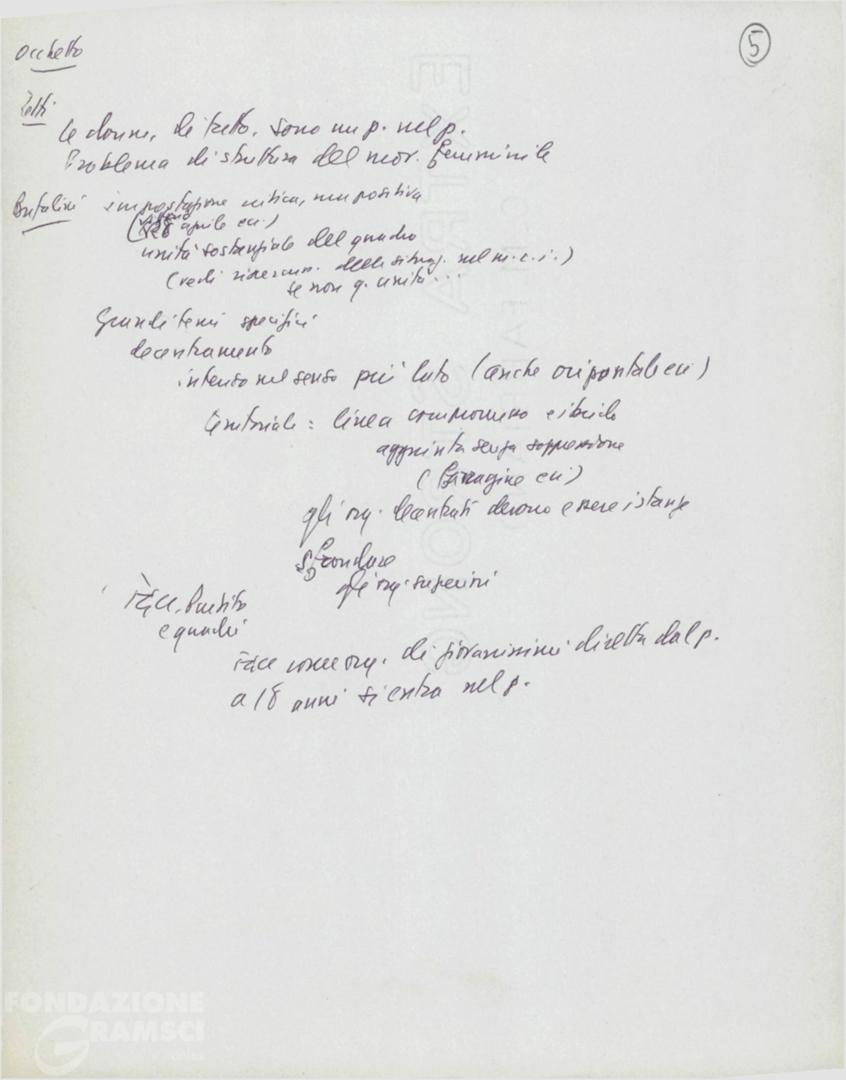 5
Occhetto
le donne, di fatto, sono un p. nel p.
Problema di struttura del mov. femminile
Bufalini impostazione critica, ma positiva
aprile ecc.)
unità sostanziale del quadro
(vedi della situaz. nel m.c.i.)
se non q. unità...
Grandi temi specifici
decentramento
inteso nel senso più lato (anche orizzontale ecc)
territoriale: linea
aggiunta senza soppressione
ecc)
gli org. decentrati devono essere istanze
gli org. superiori
FGCI, Partito
e quadri
FGCI come org. di giovanissimi diretta dal p.
a 18 anni si entra nel p.
FONDAZIONE
GRAMSCI